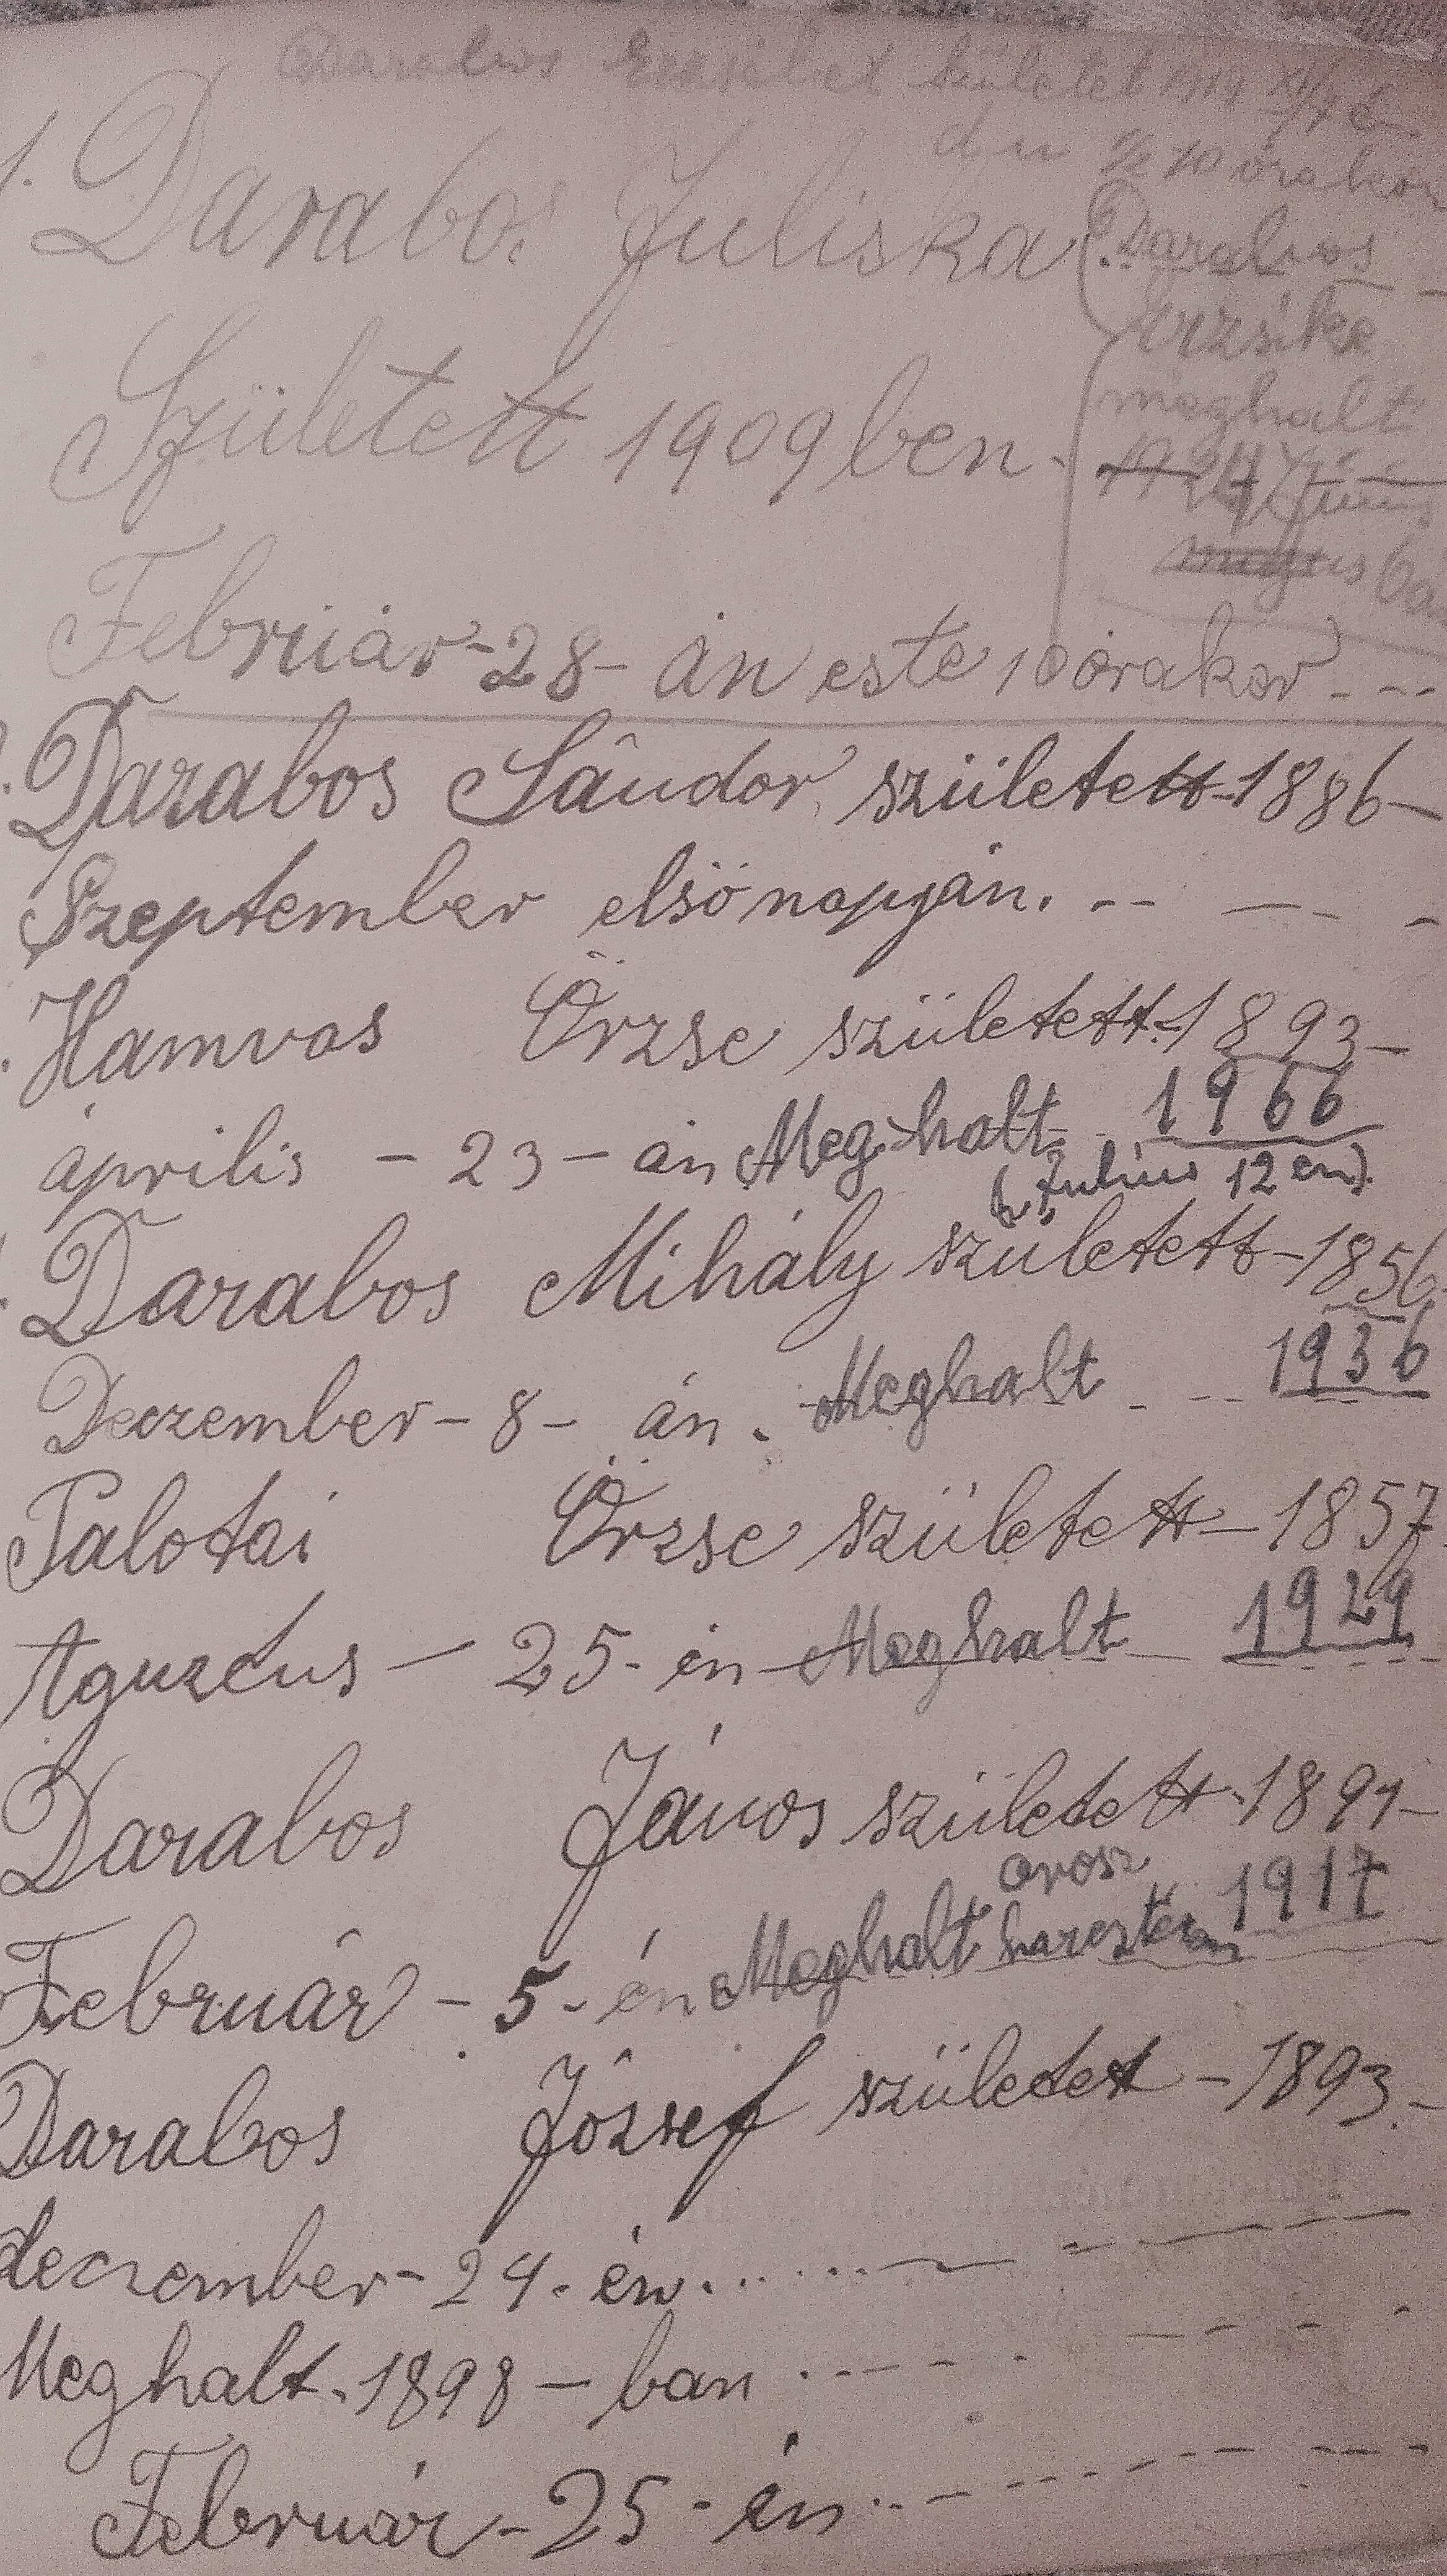 Darabos Erzsébet született 1914 XI/4 é
du ½ 10 órakor
1. Darabos Juliska
Született 1909 ben.
Február-28-án este 10 órakor---
Darabos
erzsike
meghalt
Június
ba
Darabos Sándor született-1886-
Szeptember elsö napján. -- — - -
Hamvas Örzse született.-1893-
április - 23 - án Meg-halt 1966
(Julius 12 én).
Darabos Mihály született-1856.
Deczember-8- án. Meghalt -- 1936
Palotai Örzse született-1857.
Aguzetus — 25-én-Meghalt — 1929
Darabos János született-1891-
Február - 5-én Meghalt orosz harcztéren 1917
Darabos József született -1893.-
deczember-24-én......
Meghalt.1898-ban
Február-25-én..